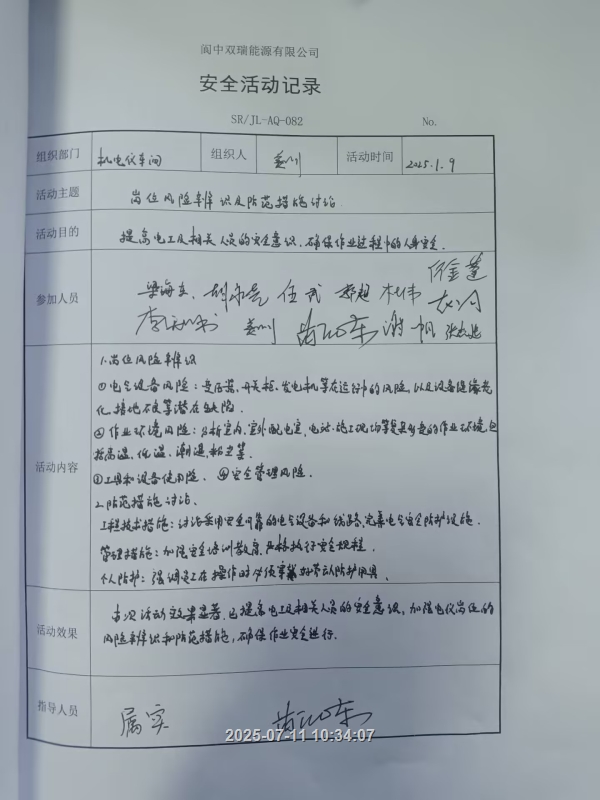 阆中双瑞能源有限公司
安全活动记录
SR/JL-AQ-082 No.
组织部门 机电仪车间 组织人 活动时间 2025.1.9
活动主题 岗位风险辨识及防范措施讨论
活动目的 提高电工及相关人员的安全意识,确保作业过程中的人身安全.
参加人员 任武 郑超 杜伟
活动内容
1.岗位风险辨识
①电气设备风险:变压器、开关柜、发电机等在运行中的风险,以及设备绝缘老
化、接地不良等潜在缺陷.
②作业环境风险:分析室内、室外配电室、电站、施工现场等复杂多变的作业环境,包
括高温、低温、潮湿、粉尘等.
③工具和设备使用风险. ④安全管理风险.
2.防范措施讨论.
工程技术措施:讨论采用安全可靠的电气设备和线路,完善电气安全防护设施.
管理措施:加强安全培训教育,严格执行安全规程.
个人防护:强调员工在操作时必须穿戴好劳动防护用具.
活动效果 本次活动效果显著,已提高电工及相关人员的安全意识,加强电仪岗位的
风险辨识和防范措施,确保作业安全进行.
指导人员 属实
2025-07-11 10:34:07